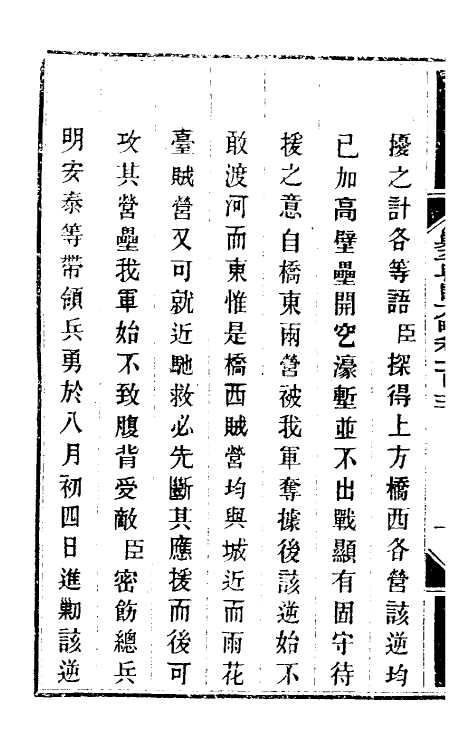 擾之計各等語臣探得上方橋西各營該逆均
已加高壁壘開穵濠塹並不出戰顯有固守待
援之意自橋東兩營被我軍奪據後該逆始不
敢渡河而東惟是橋西賊營均與城近而雨花
臺賊營又可就近馳救必先斷其應援而後可
攻其營壘我軍始不致腹背受敵臣密飭總兵
明安泰等帶領兵勇於八月初四日進勦該逆